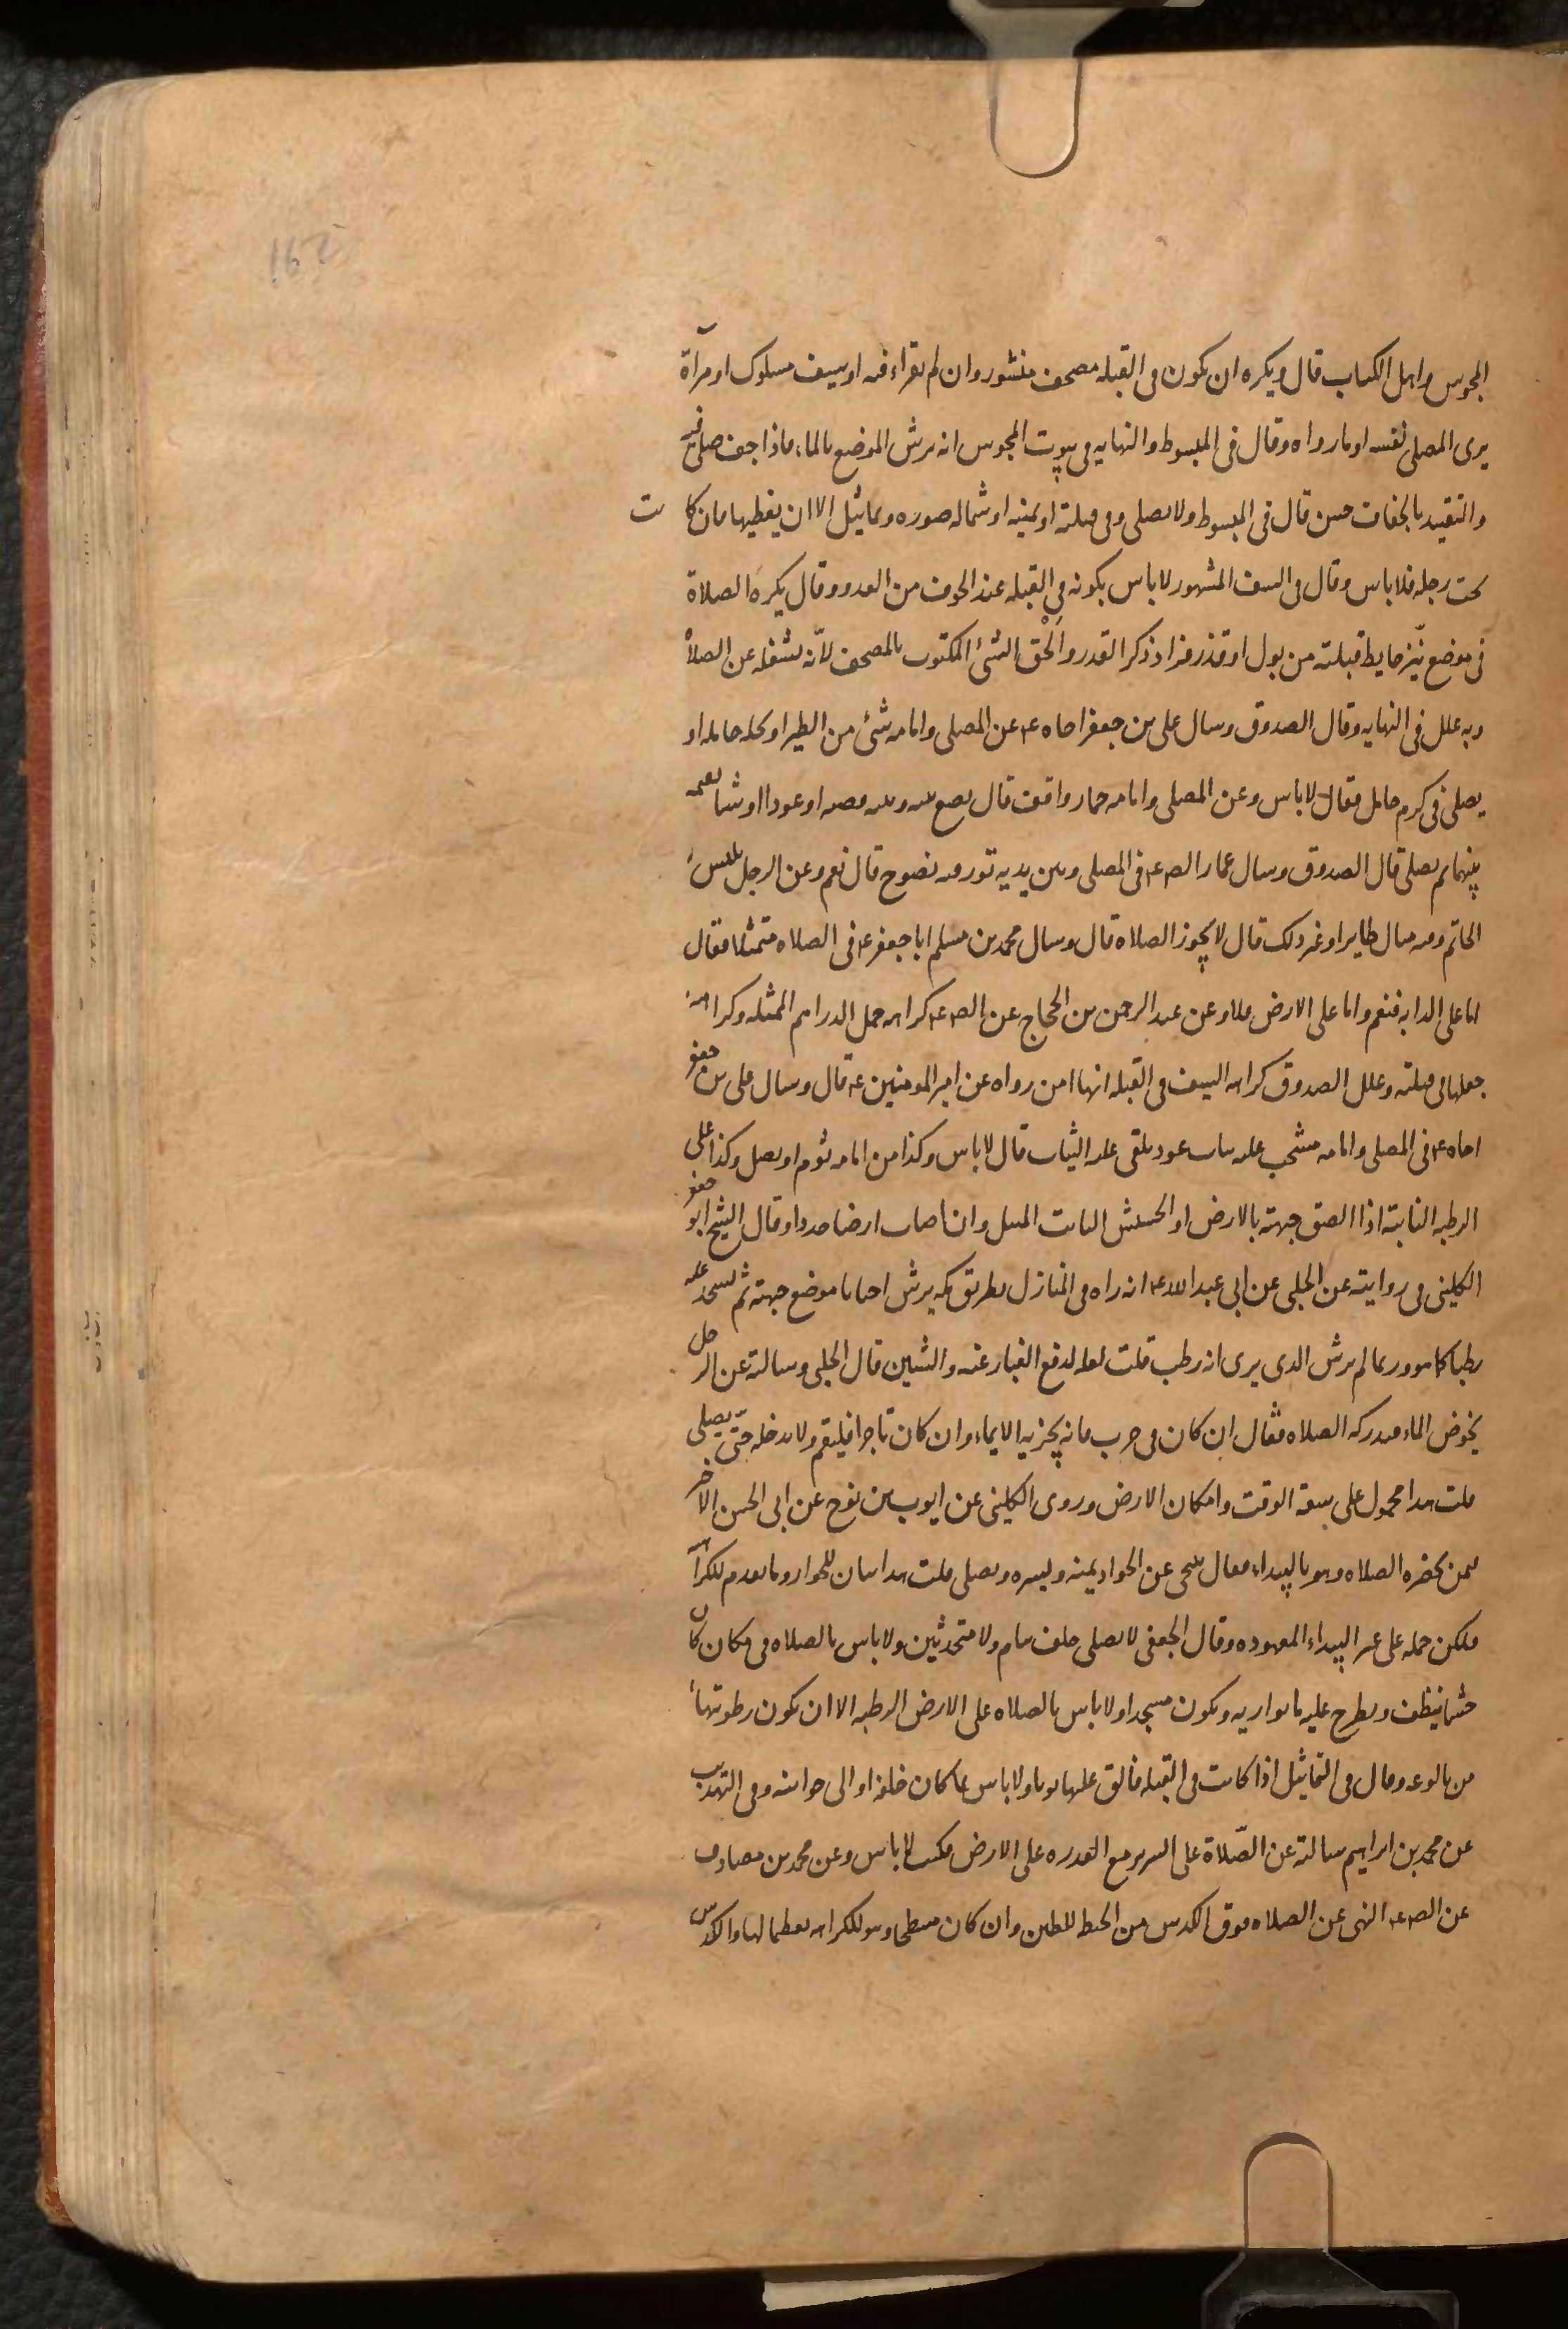 162
المجوس واهل الكتاب قال ويكره ان يكون فى القبله مصحف منشور وان لم يقراء فيه او سيف مسلوك او مرآة
يرى المصلى نفسه او ما رواه وقال فى المبسوط والنهايه فى بيوت المجوس انه يرش الموضع بالماء فاذا جف صلى فيه
والتقييد بالجفاف حسن قال فى المبسوط ولا يصلى وفى قبلته او يمينه او شماله صوره وتماثيل الا ان يغطيها فان كانت
تحت رجله فلا باس وقال فى السيف المشهور لا باس بكونه فى القبله عند الخوف من العدو وقال يكره الصلاة
فى موضع ينّز حايط قبلته من بول او قذر فزاد ذكر القدر والحق الشئ المكتوب بالمصحف لانّه يشغله عن الصلاة
وبه علل فى النهايه وقال الصدوق وسال على بن جعفر اخاه ع عن المصلى وامامه شئ من الطير او نخله حامله او
يصلى فى كرم حامل فقال لا باس وعن المصلى وامامه حمار واقف قال يضع بينه وبينه قصبه او عودا او شيا يقيمه
بينهما ثم يصلى قال الصدوق وسال عمار الص ع فى المصلى وبين يديه تور فيه نضوح قال نعم وعن الرجل يلبس
الخاتم وفيه مثال طاير او غير ذلك قال لا يجوز الصلاه قال وسال محمد بن مسلم ابا جعفر ع فى الصلاه متمثلا فقال
اما على الدابه فنعم واما على الارض فلا وعن عبد الرحمن بن الحجاج عن الص ع كراهه حمل الدراهم الممثله وكراهة
جعلها فى قبلته وعلل الصدوق كراهه السيف فى القبله انها امن رواه عن امير المومنين ع قال وسال على بن جعفر
اخاه ع فى المصلى وامامه مشجب عليه ثياب عود يلقى عليه الثياب قال لا باس وكذا من امامه ثوم او بصل وكذا على
الرطبه النابتة اذا الصق جبهته بالارض او الحشيش النابت الثيل وان اصاب ارضا جددا وقال الشيخ ابو جعفر
الكلينى فى روايته عن الحلبى عن ابى عبد الله ع انه راه فى المنازل بطريق مكه يرش احيانا موضع جبهته ثم يسجد عليه
رطبا كما هو وربما لم يرش الذى يرى انه رطب قلت لعله لدفع الغبار عنه والشين قال الحلبى وسالته عن الرجل
يخوض الماء فيدركه الصلاه فقال ان كان فى حرب فانه يجزيه الايماء وان كان تاجرا فليقم ولا يدخله حتّى يصلى
قلت هذا محمول على سعة الوقت وامكان الارض وروى الكلينى عن ايوب بن نوح عن ابى الحسن الاخير
فيمن يحضره الصلاه وهو بالبيداء فقال يتنحى عن الجواد يمنه ويسره ويصلى قلت هذا بيان للجواز وما تقدم للكراهة
فيكن حمله على غير البيداء المعهوده وقال الجعفى لا يصلى خلف نيام ولا متحدثين ولا باس بالصلاه فى مكان كان
حشا ينظف ويطرح عليه ما يواريه ويكون مسجدا ولا باس بالصلاه على الارض الرطبه الا ان يكون رطوبتها
من بالوعه وقال فى التماثيل اذا كانت فى القبله فالق عليها ثوبا ولا باس بما كان خلفه او الى جوانبه وفى التهذيب
عن محمد بن ابراهيم سالته عن الصّلاة على السرير مع القدره على الارض فكتب لا باس وعن محمد بن مصادف
عن الص ع النهى عن الصلاه فوق الكدس من الحنطه للطين وان كان مسطحا وهو للكراهه تعظيما لها والكدس